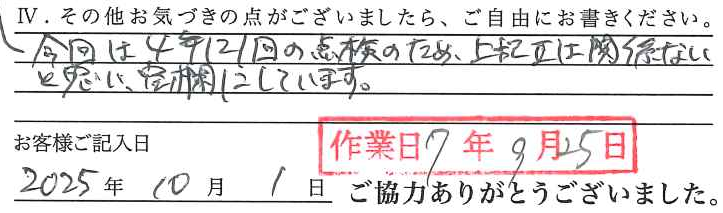 Ⅳ．その他お気づきの点がございましたら、ご自由にお書きください。
今回は4年に1回の点検のため、上記Ⅱは関係ない
と思い、空欄にしています。
お客様ご記入日
作業日7年9月25日
2025年10月1日
ご協力ありがとうございました。